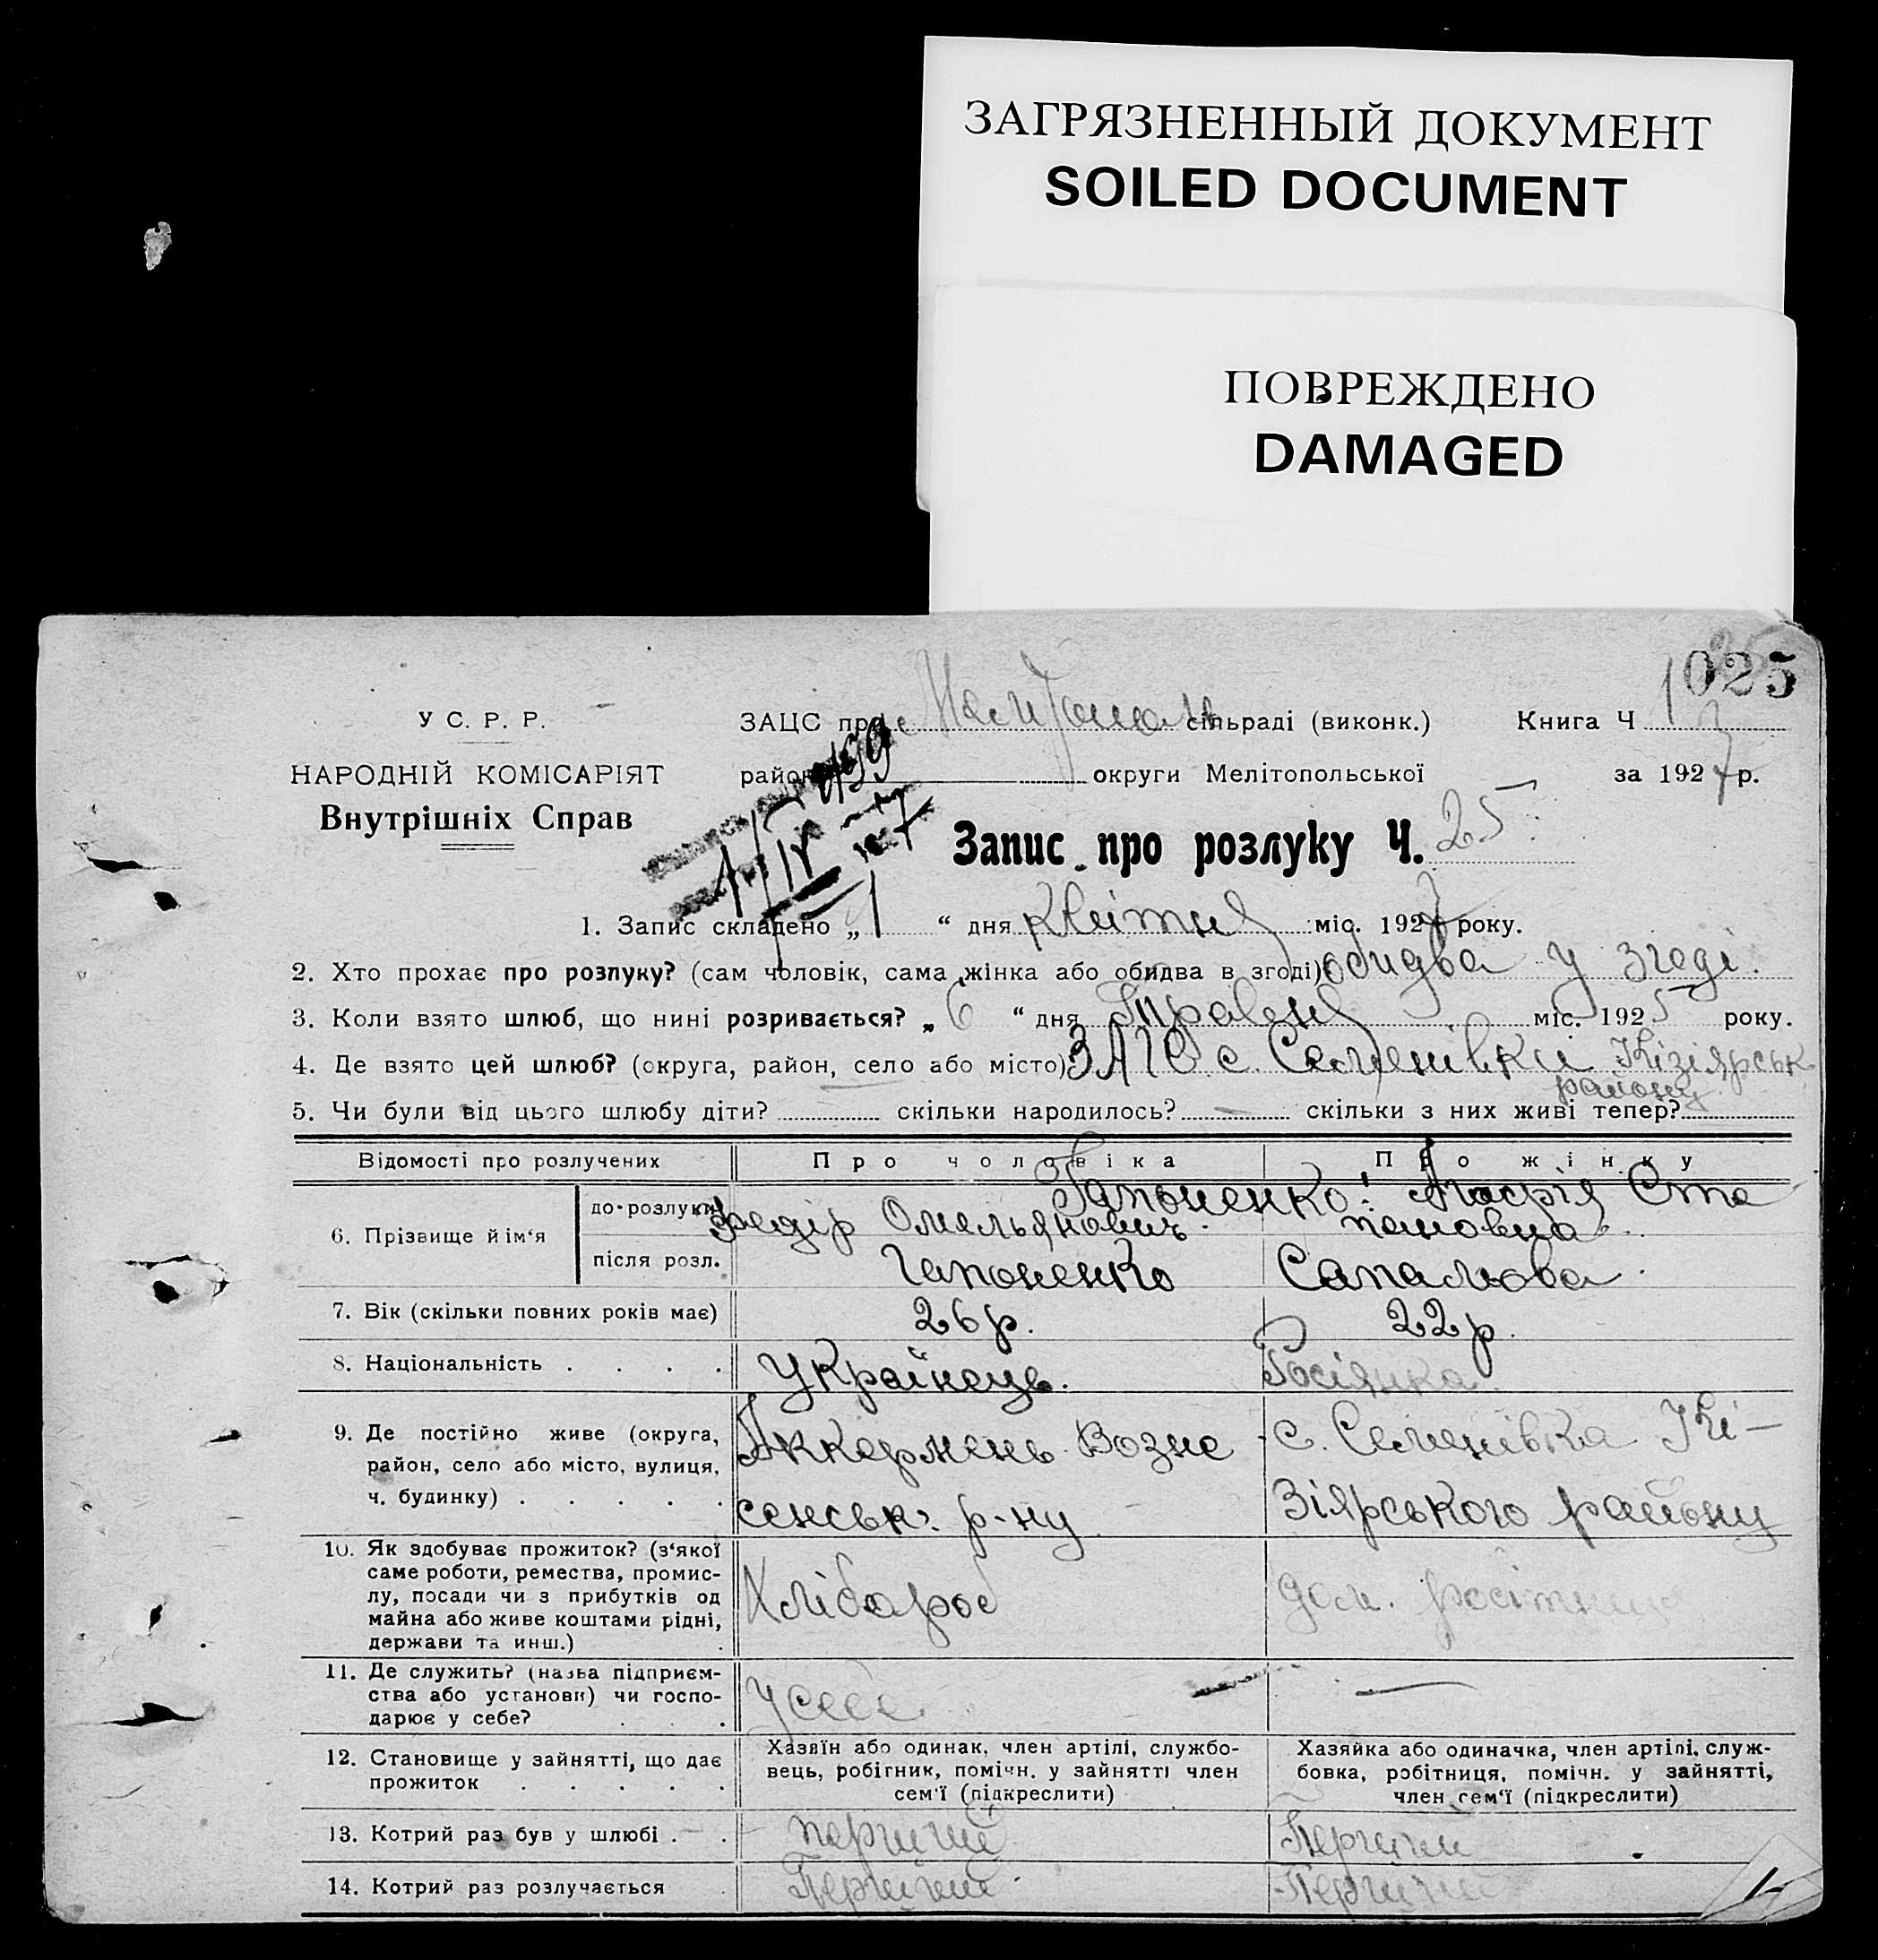 ЗАГРЯЗНЕННЫЙ ДОКУМЕНТ
SOILED DOCUMENT
ПОВРЕЖДЕНО
DAMAGED
1025
У С. Р. Р.
ЗАЦС при сільраді (виконк.) Книга Ч
НАРОДНІЙ КОМІСАРІЯТ
район округи Мелітопольської за 1927 р.
Внутрішніх Справ
Запис про розлуку Ч. 25
1. Запис складено „ 1 “ дня Квітня міс. 1927 року.
2. Хто прохає про розлуку? (сам чоловік, сама жінка або обидва в згоді) обидва у згоді.
3. Коли взято шлюб, що нині розривається? „ 6 “ дня Травня міс. 1925 року.
4. Де взято цей шлюб? (округа, район, село або місто) ЗАГС с. Семенівки Кізіярськ
району
5. Чи були від цього шлюбу діти? — скільки народилось? — скільки з них живі тепер?
Відомості про розлучених
Про чоловіка
Про жінку
6. Прізвище й ім‘я
до-розлуки
Гапоненко:
Федір Омельянович.
Сте
пановна
після розл.
Гапоненко
Сапальова
7. Вік (скільки повних років має)
26 р.
22 р.
8. Національність . . . .
Українець.
Росіянка.
9. Де постійно живе (округа,
район, село або місто, вулиця,
ч. будинку) . . . . .
Аккермень Возне
сенськ. р-ну
с. Семенівка Кі-
зіярського району
10. Як здобуває прожиток? (з‘якої
саме роботи, ремества, промис-
лу, посади чи з прибутків од
майна або живе коштами рідні,
держави та инш.)
Хлібороб
дом. робітниця
11. Де служить? (назва підприєм-
ства або установи) чи госпо-
дарює у себе? . . .
У себе
—
12. Становище у зайнятті, що дає
прожиток . . . . .
Хазяїн або одинак, член артілі, службо-
вець, робігник, помічн. у зайнятті член
сем‘ї (підкреслити)
Хазяйка або одиначка, член артілі, служ-
бовка, робітниця, помічн. у зайнятті,
член сем‘ї (підкреслити)
13. Котрий раз був у шлюбі . .
перший
Перший
14. Котрий раз розлучається
Перший
Перший